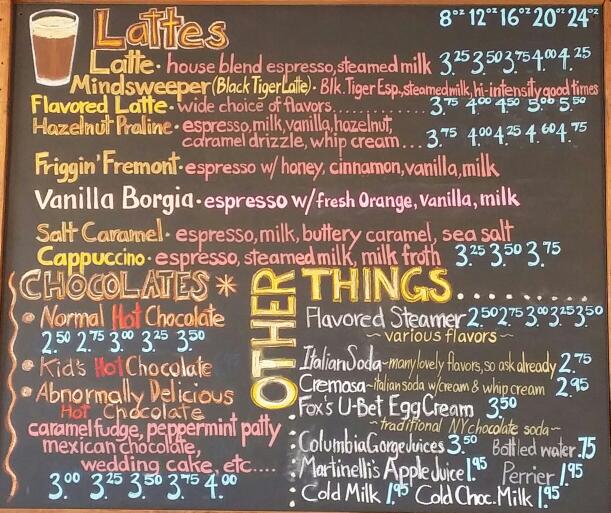 Lattes 8oz 12oz 16oz 20oz 24oz
Latte · house blend espresso, steamed milk 3.25 3.50 3.75 4.00 4.25
Mindsweeper (Black Tiger Latte) · Blk. Tiger Esp., steamed milk, hi-intensity good times
Flavored Latte · wide choice of flavors........ 3.75 4.00 4.50 5.00 5.50
Hazelnut Praline · espresso, milk, vanilla, hazelnut,
caramel drizzle, whip cream... 3.75 4.00 4.25 4.60 4.75
Friggin' Fremont · espresso w/ honey, cinnamon, vanilla, milk
Vanilla Borgia · espresso w/ fresh Orange, vanilla, milk
Salt Caramel · espresso, milk, buttery caramel, sea salt
Cappuccino · espresso, steamed milk, milk froth 3.25 3.50 3.75
CHOCOLATES *
Normal Hot Chocolate
2.50 2.75 3.00 3.25 3.50
Kid's Hot Chocolate
Abnormally Delicious
Hot Chocolate
caramel fudge, peppermint patty
mexican chocolate,
wedding cake, etc....
3.00 3.25 3.50 3.75 4.00
OTHER THINGS.......
Flavored Steamer 2.50 2.75 3.00 3.25 3.50
~ various flavors ~
Italian Soda ~ many lovely flavors, so ask already 2.75
Cremosa ~ italian soda w/cream & whip cream 2.95
Fox's U-Bet Egg Cream 3.50
~ traditional NY chocolate soda ~
Columbia Gorge Juices 3.50 Bottled water .75
Martinelli's Apple Juice 1.95 Perrier 1.95
Cold Milk 1.95 Cold Choc. Milk 1.95